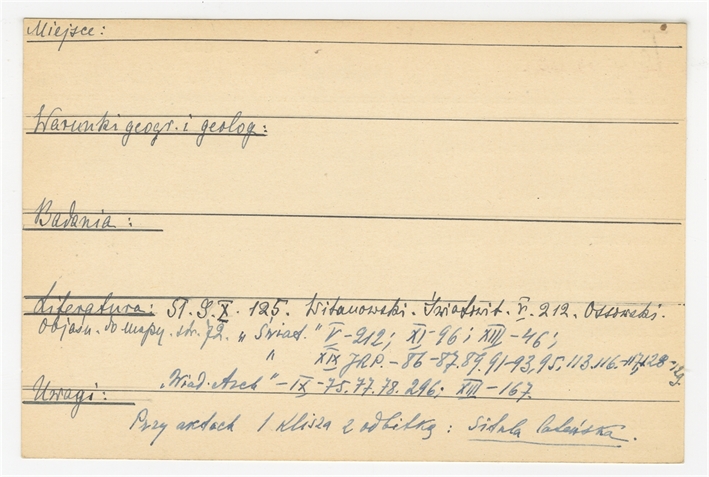 Miejsce:
Warunki geogr. i geolog:
Badania:
Literatura: Sł. G. X. 125. Witanowski. Światowit. V. 212. Ossowski.
Objaśn. do mapy. str. 72. „Świat." V-212; XI-96; XIII-46;
" XIX JRP.-86-87.89.91-93.95.113.116-117,128-129.
Uwagi: „Wiad. Arch"-IX-75.77.78.296; XIII-167.
Przy aktach 1 klisza z odbitką: